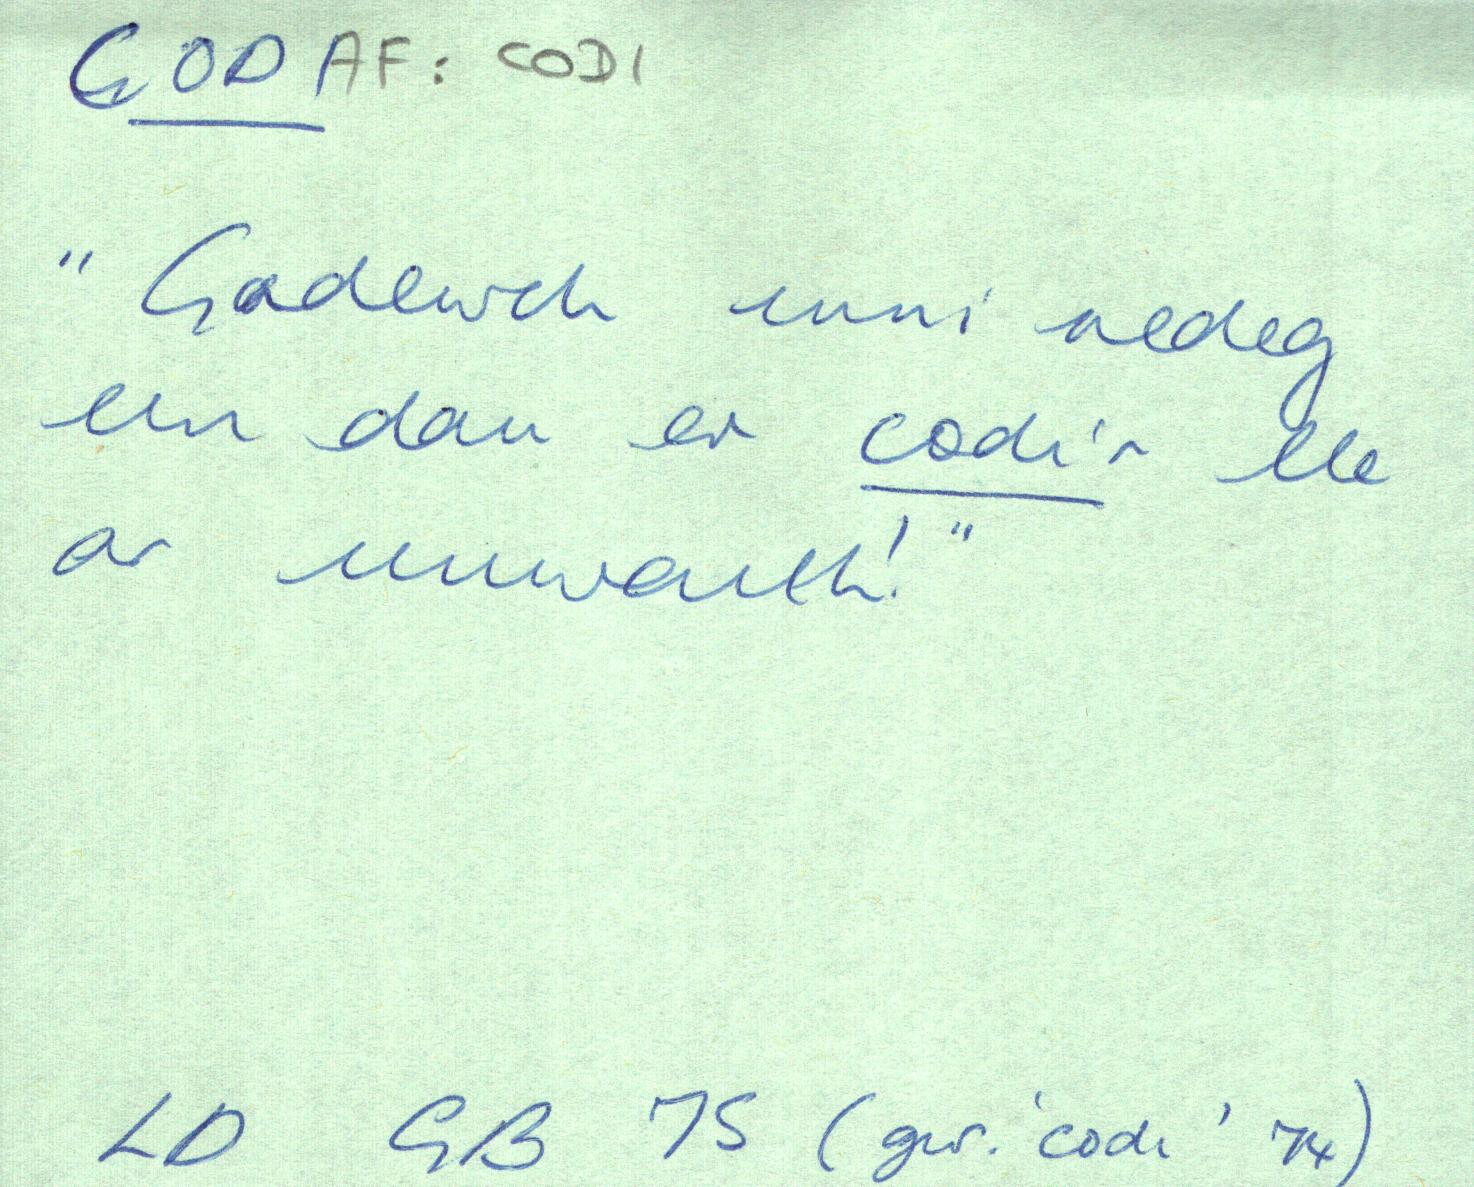 GODAF: CODI
"Gadewch inni redeg
ein dau er codi'r lle
ar unwaith!"
LD GB 75 (gw. 'codi' 74)